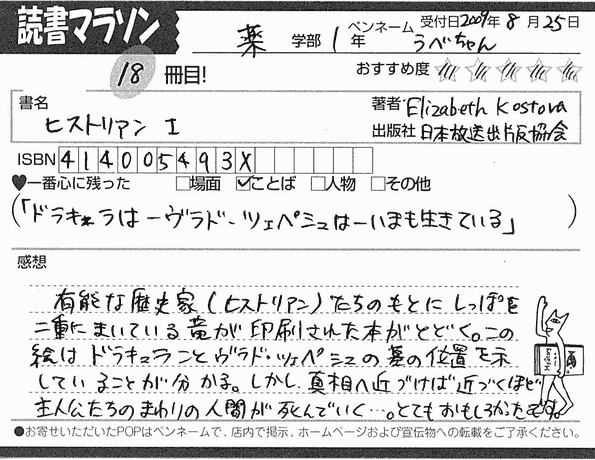 読書マラソン
薬 学部 1 年 ペンネーム うべちゃん 受付日2009年 8 月 25日
18 冊目! おすすめ度
書名 ヒストリアン I
著者 Elizabeth Kostova
出版社 日本放送出版協会
ISBN 414005493X
♥一番心に残った □場面 ☑ことば □人物 □その他
(「ドラキュラは－ヴラド・ツェペシュは－いまも生きている」)
感想
有能な歴史家(ヒストリアン)たちのもとに しっぽを
二重にまいている竜が印刷された本がとどく。この
絵は ドラキュラこと ヴラド・ツェペシュの墓の位置を示
していることが分かる。しかし、真相へ近づけば近づくほど
主人公たちのまわりの人間が死んでいく…。とてもおもしろかったです。
●お寄せいただいたPOPはペンネームで、店内で掲示、ホームページおよび宣伝物への転載をご了承ください。